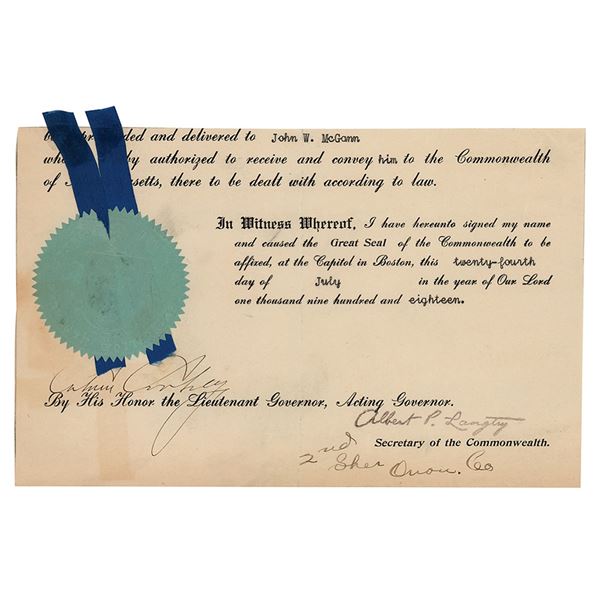 ded and delivered to John W. McGann
by authorized to receive and convey him to the Commonwealth
of setts, there to be dealt with according to law.
In Witness Whereof, I have hereunto signed my name
and caused the Great Seal of the Commonwealth to be
affixed, at the Capitol in Boston, this twenty-fourth
day of July in the year of Our Lord
one thousand nine hundred and eighteen.
Calvin Coolidge
By His Honor the Lieutenant Governor, Acting Governor.
Albert P. Langtry
Secretary of the Commonwealth.
2nd
Co